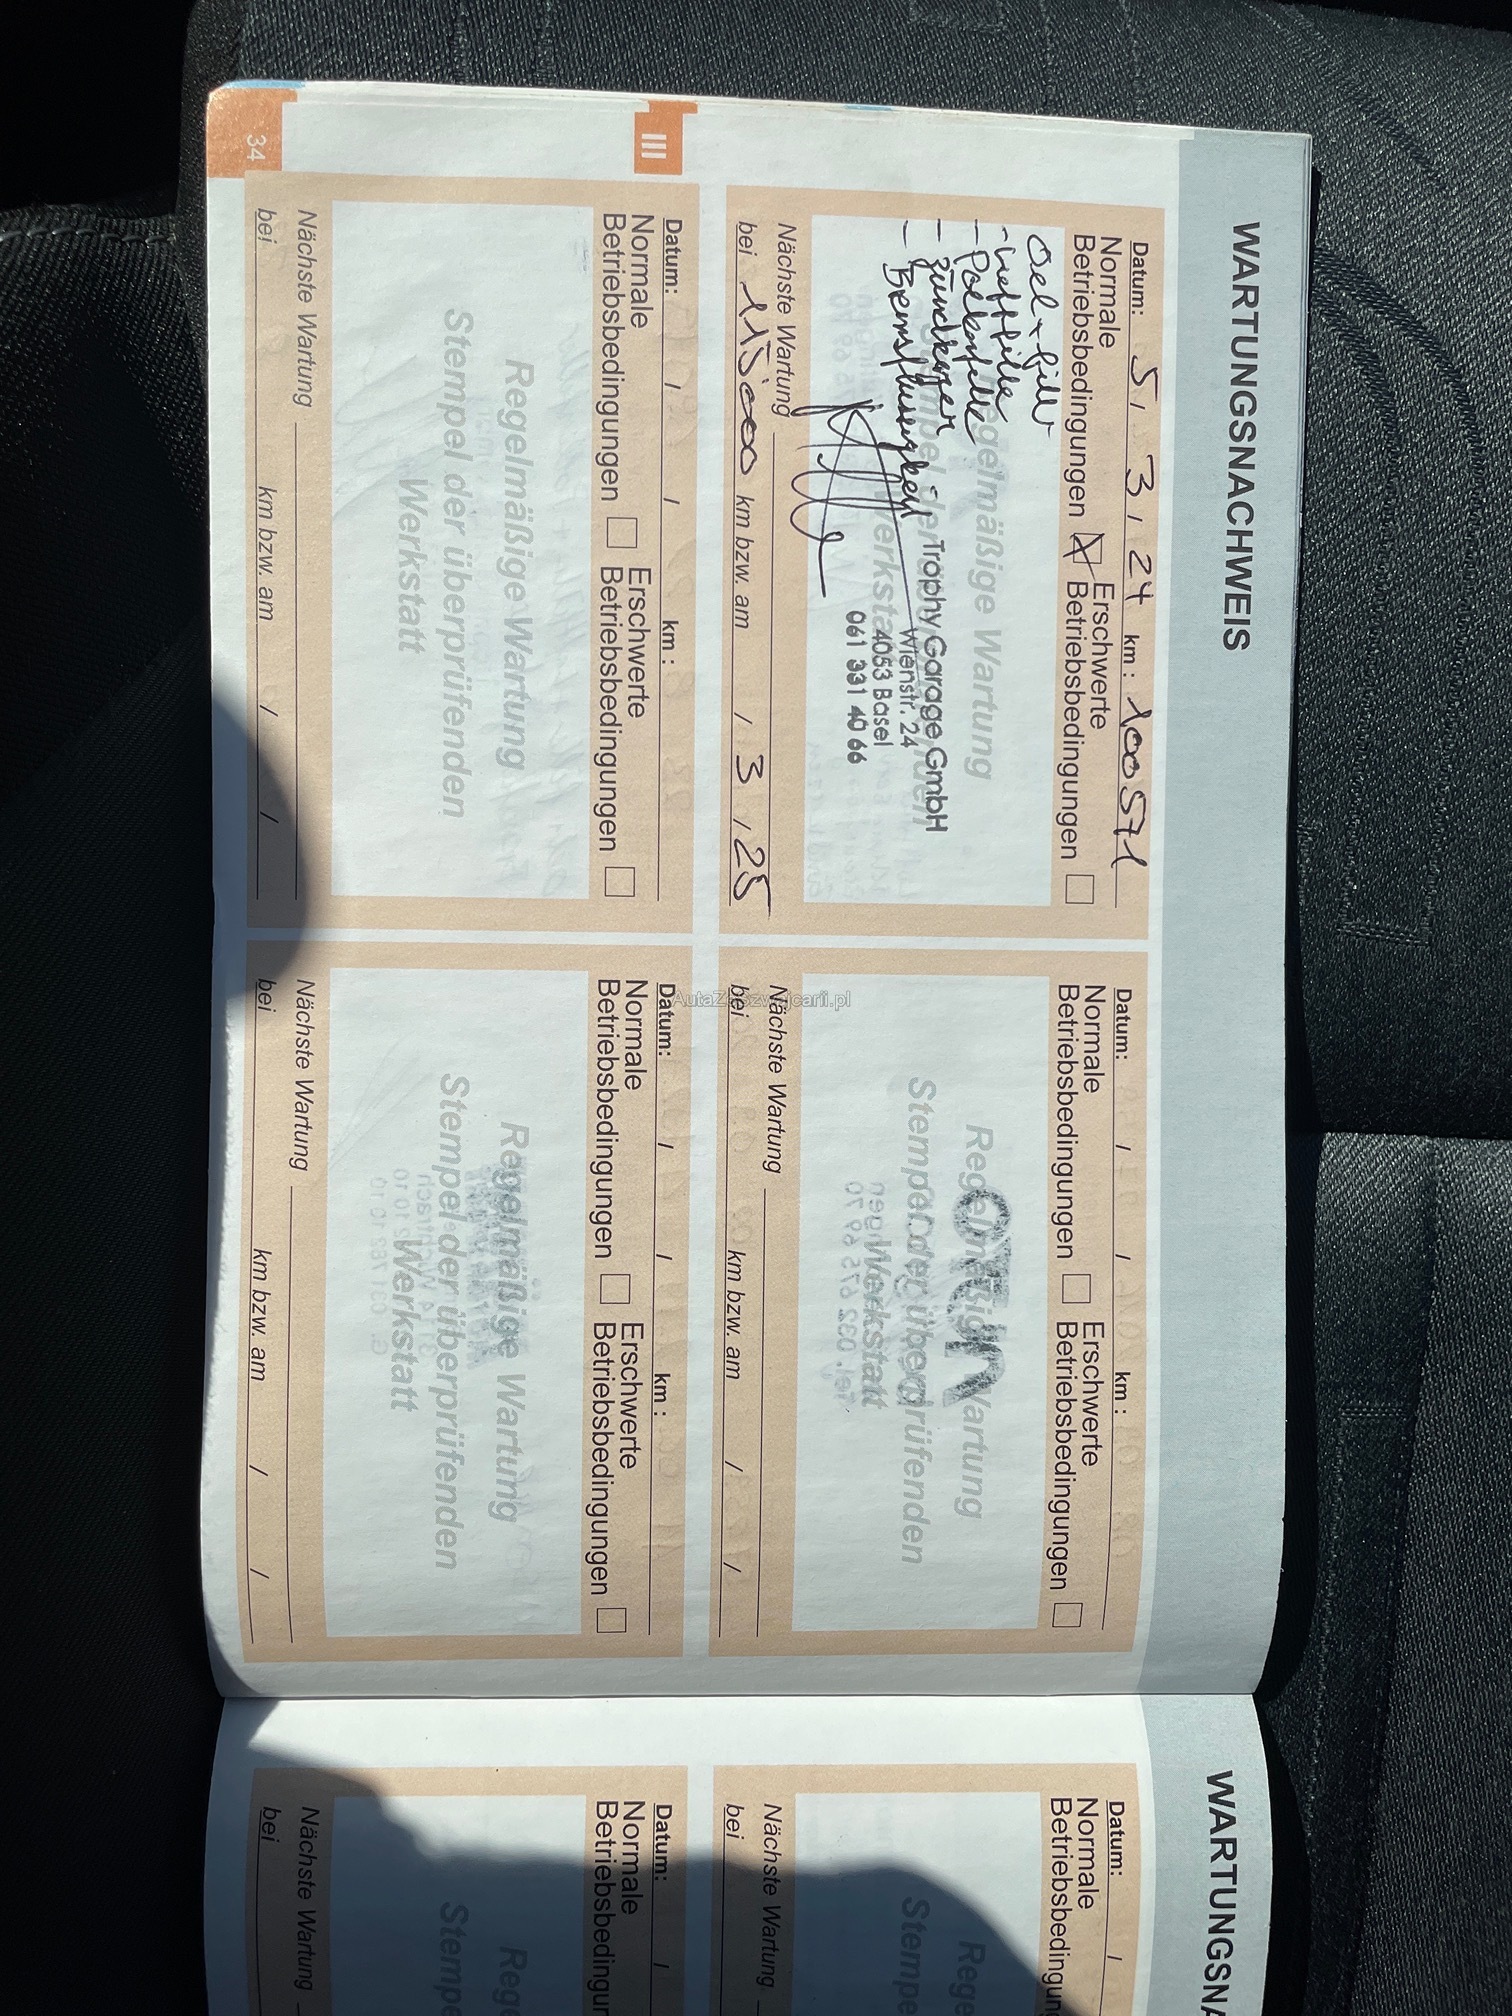 WARTUNGSNACHWEIS
Datum: 5 / 3 / 24 km : 100571
Normale Betriebsbedingungen
Erschwerte Betriebsbedingungen
Regelmäßige Wartung
Oel + Filter
- Luftfilter
- Pollenfilter
- Zündkerzen
- Bremsflüssigkeit
Trophy Garage GmbH
Wienstr. 24
4053 Basel
061 331 40 66
Nächste Wartung
bei 115000 km bzw. am / 3 / 25
Datum: / / km :
Normale Betriebsbedingungen
Erschwerte Betriebsbedingungen
Regelmäßige Wartung
Stempel der überprüfenden
Werkstatt
Nächste Wartung
bei km bzw. am / /
III
Datum: / / km :
Normale Betriebsbedingungen
Erschwerte Betriebsbedingungen
Regelmäßige Wartung
Stempel der überprüfenden
Werkstatt
Nächste Wartung
bei km bzw. am / /
Datum: / / km :
Normale Betriebsbedingungen
Erschwerte Betriebsbedingungen
Regelmäßige Wartung
Stempel der überprüfenden
Werkstatt
Nächste Wartung
bei km bzw. am / /
34
AutaZeSzwajcarii.pl
WARTUNGSNA
Datum: /
Normale
Betriebsbedingun
Rege
Stempe
Nächste Wartung
bei
Datum: /
Normale
Betriebsbedingun
Rege
Stempe
Nächste Wartung
bei